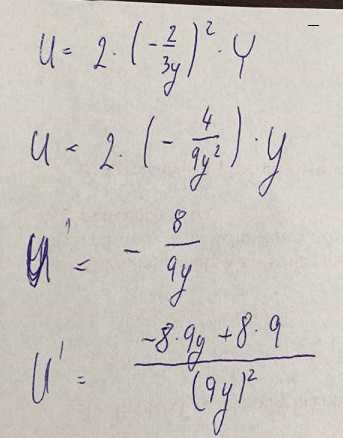 u = 2 · (-2/3y)² · y
u = 2 · (-4/9y²) · y
u' = - 8/9y
u' = -8·9y + 8·9/(9y)²